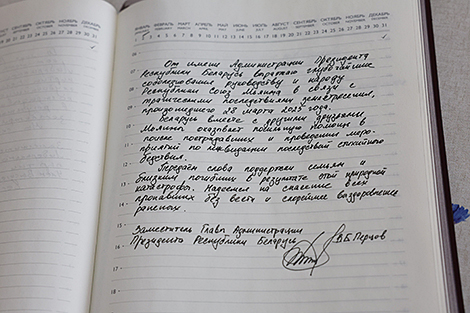 ДЕКАБРЬ
ЯНВАРЬ ФЕВРАЛЬ МАРТ АПРЕЛЬ МАЙ ИЮНЬ ИЮЛЬ АВГУСТ СЕНТЯБРЬ ОКТЯБРЬ НОЯБРЬ ДЕКАБРЬ
От имени Администрации Президента
Республики Беларусь выражаю глубочайшие
соболезнования руководству и народу
Республики Союз Мьянма в связи с
трагическими последствиями землетрясения,
произошедшего 28 марта 2025 года.
Беларусь вместе с другими друзьями
Мьянмы оказывает посильную помощь в
поиске пострадавших и проведении меро-
приятий по ликвидации последствий стихийного
бедствия.
Передаём слова поддержки семьям и
близким погибших в результате этой природной
катастрофы. Надеемся на спасение всех
пропавших без вести и скорейшее выздоровление
раненых.
Заместитель Главы Администрации
Президента Республики Беларусь
В.Б.Перцов